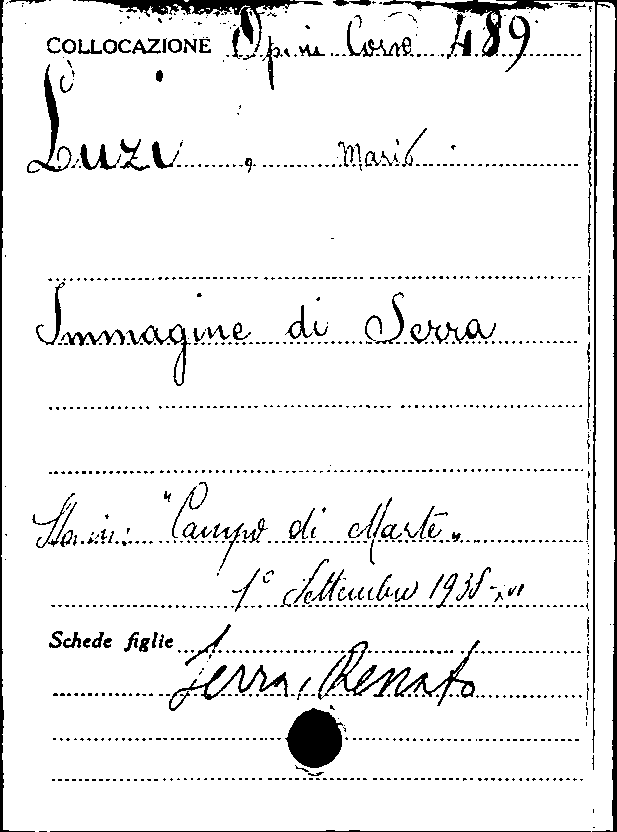 COLLOCAZIONE Opini Corso 489
Luzi, Mario.
Immagine di Serra
Sta in: "Campo di Marte"
1° Settembre 1938-XVI
Schede figlie
Serra, Renato